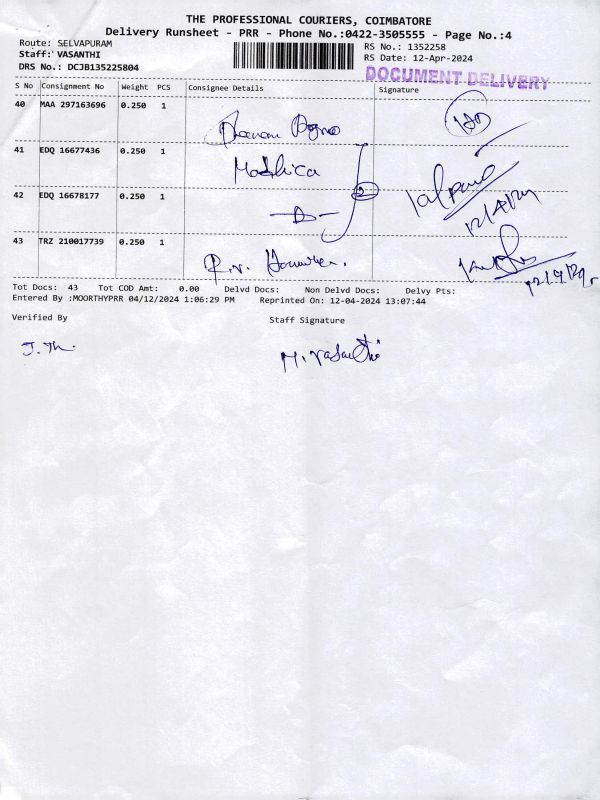 THE PROFESSIONAL COURIERS, COIMBATORE
Delivery Runsheet - PRR - Phone No.:0422-3505555 - Page No.:4
Route: SELVAPURAM
RS No.: 1352258
Staff: VASANTHI
RS Date: 12-Apr-2024
DRS No.: DCJB135225804
DOCUMENT DELIVERY
S No Consignment No Weight PCS Consignee Details Signature
40 MAA 297163696 0.250 1
41 EDQ 16677436 0.250 1 Madhica
42 EDQ 16678177 0.250 1 -D-
43 TRZ 210017739 0.250 1
Tot Docs: 43 Tot COD Amt: 0.00 Delvd Docs: Non Delvd Docs: Delvy Pts:
Entered By :MOORTHYPRR 04/12/2024 1:06:29 PM Reprinted On: 12-04-2024 13:07:44
Verified By Staff Signature
M. Vasanthi